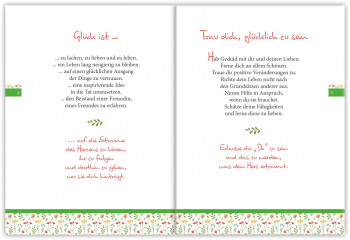 Glück ist ...
... zu lachen, zu lieben und zu leben.
... ein Leben lang neugierig zu bleiben.
... auf einen glücklichen Ausgang
der Dinge zu vertrauen.
... eine inspirierende Idee
in die Tat umzusetzen.
... den Beistand einer Freundin,
eines Freundes zu erfahren.
... auf die Stimme
des Herzens zu hören,
ihr zu folgen
und dorthin zu gehen,
wo sie dich hinträgt.
Trau dich, glücklich zu sein
Hab Geduld mit dir und deinen Lieben.
Freue dich an allem Schönen.
Traue dir positive Veränderungen zu.
Richte dein Leben nicht nach
den Grundsätzen anderer aus.
Nimm Hilfe in Anspruch,
wenn du sie brauchst.
Schätze deine Fähigkeiten
und lerne diese zu lieben.
Erlaube dir „Du“ zu sein
und das zu werden,
was dein Herz erträumt.